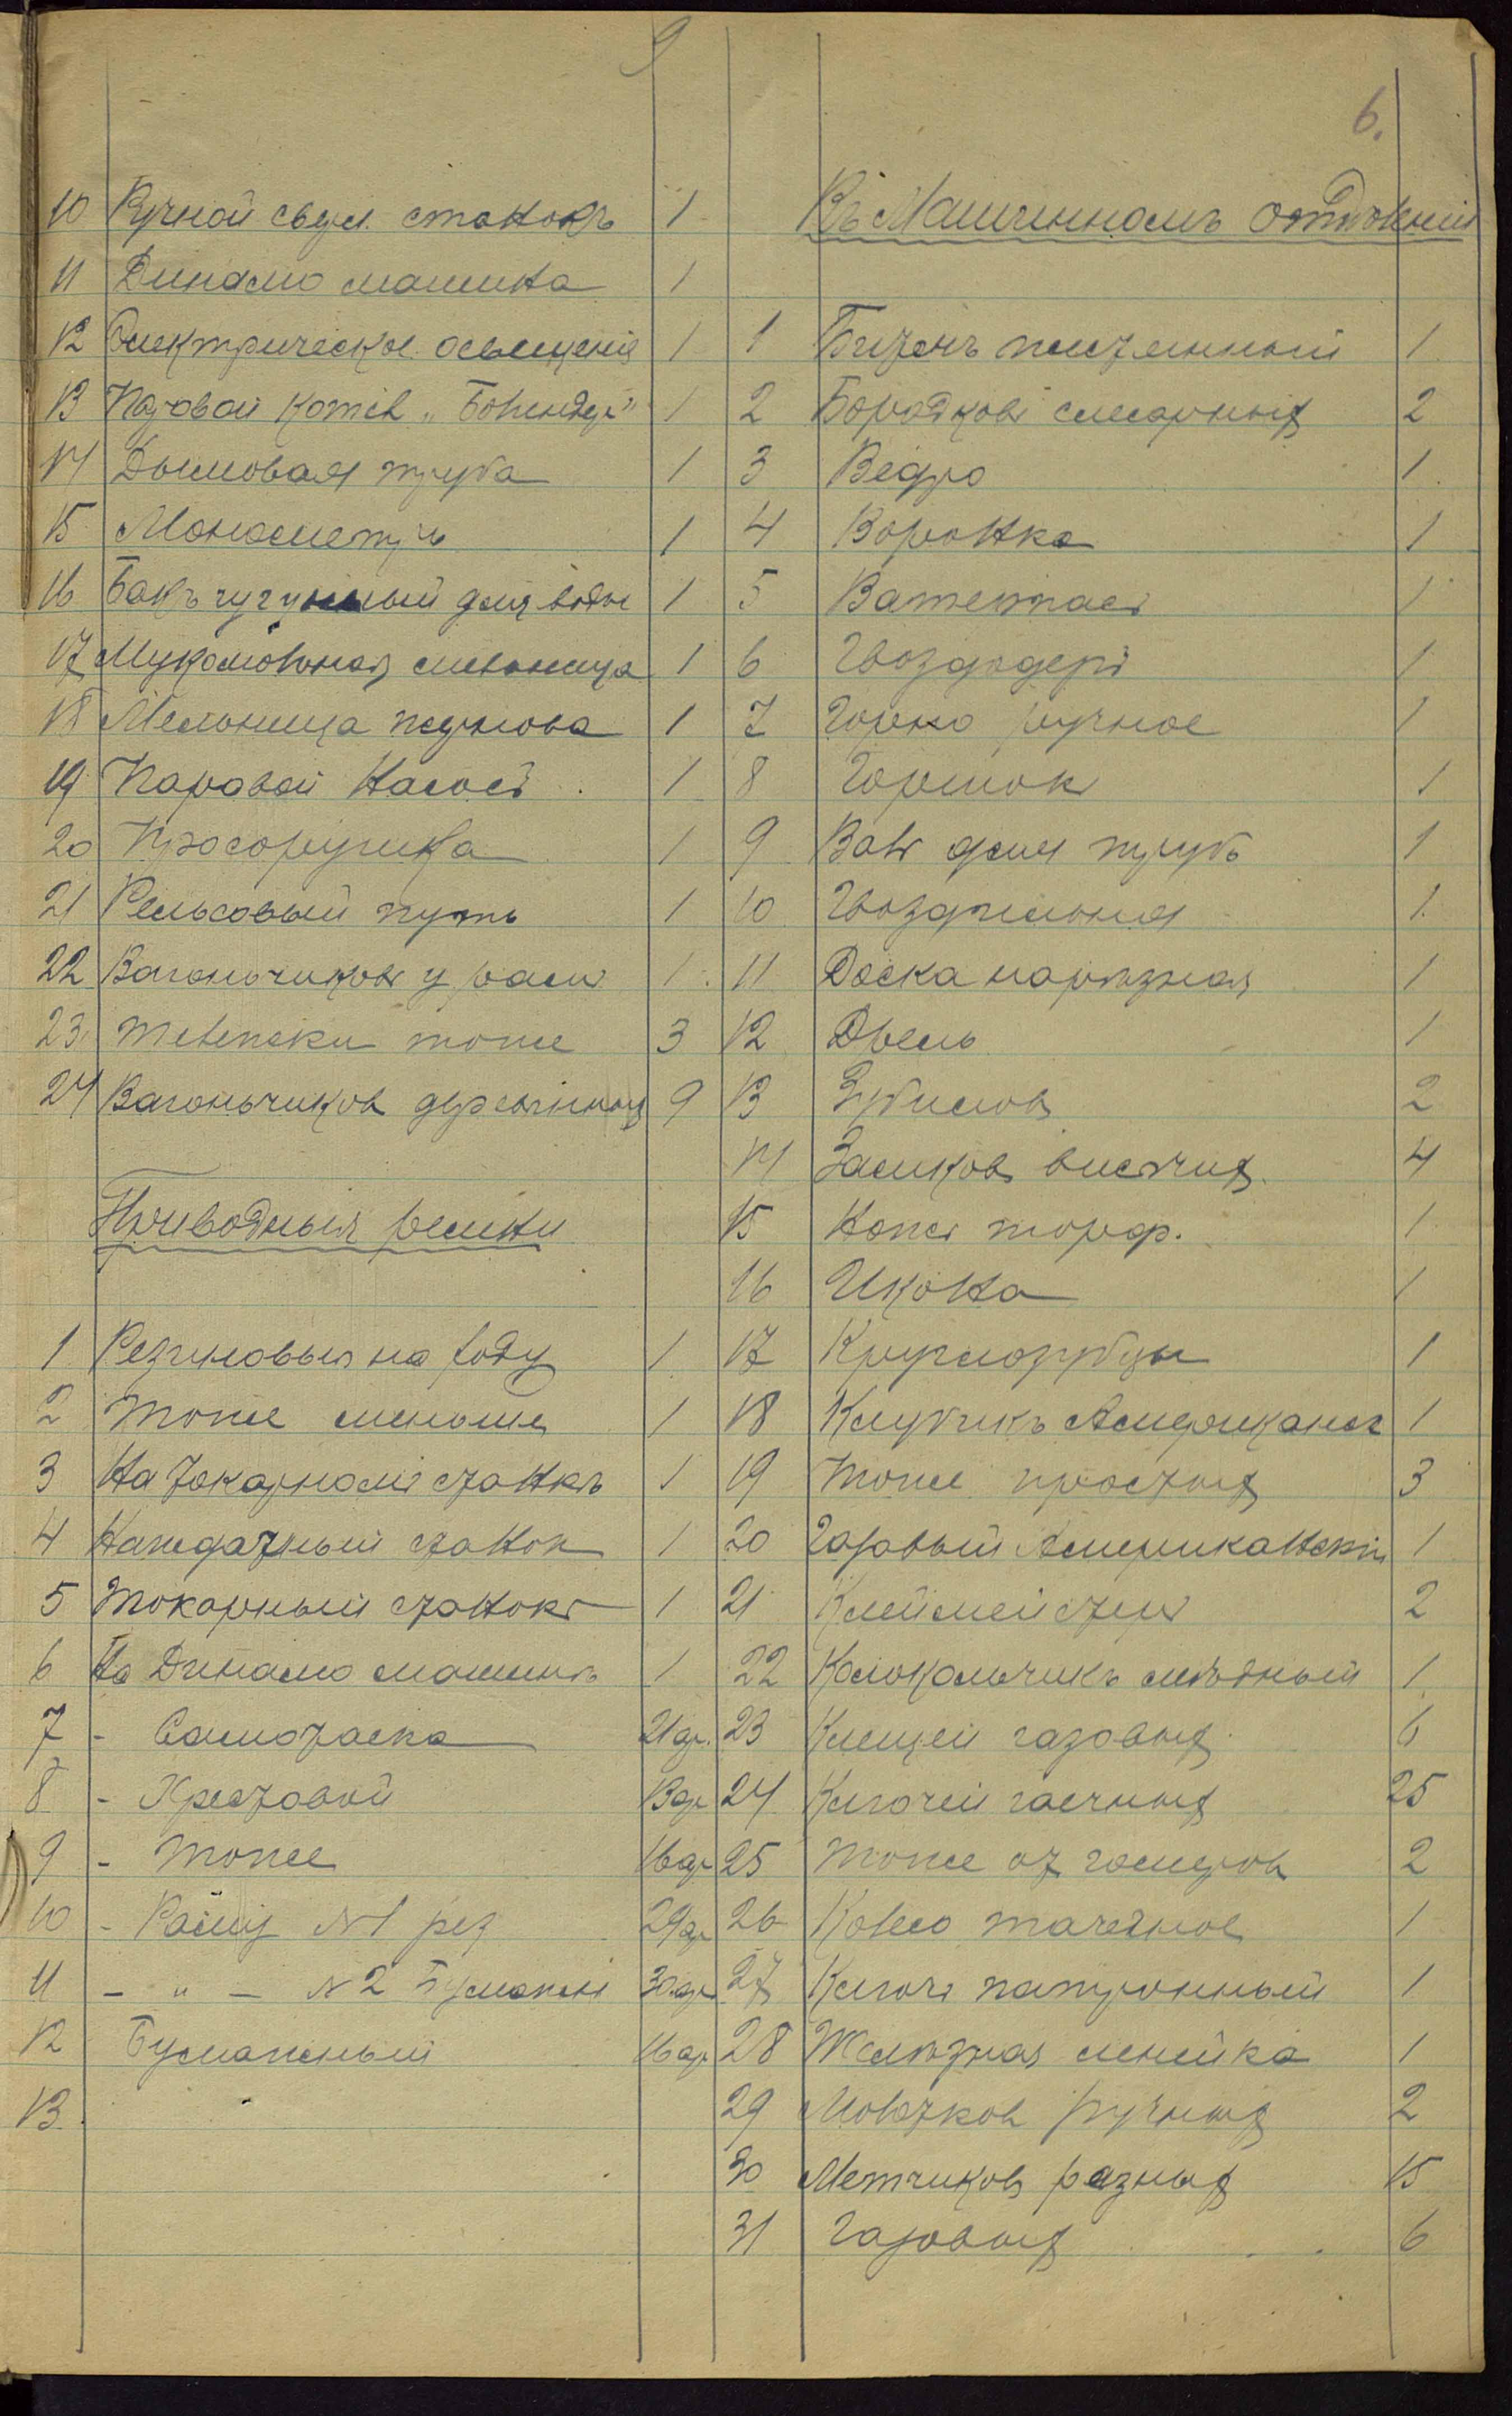 9
6.
10 Ручной сверл. станокъ 1
11 Динамо машина 1
12 Электрическое освещеніе 1
13 Паровой котел 1
14 Дымовая труба 1
15 Манометръ 1
16 Бакъ чугунный для воды 1
17 Мукомольная мельница 1
18 Мельница жернова 1
19 Паровой насос 1
20 Просорушка 1
21 Рельсовый путь 1
22 Вагончиков 1
23 Тележки тоже 3
24 Вагончиков деревянных 9
Приводныя ремни
1 Резиновыя на воду 1
2 Тоже меньше 1
3 На токарномъ станкѣ 1
4 Наждачный станок 1
5 Токарный станокъ 1
6 На Динамо машинѣ 1
7 - Самотаска 21 ар.
8 - Крестовой 13 ар
9 - Тоже 16 ар
10 - №1 рез 29 ар
11 - " - №2 30 ар
12 Бумажный 16 ар
13
Въ Машинномъ отдѣленіи
1 Бидонъ жестянный 1
2 Бородков слесарных 2
3 Ведро 1
4 Воронка 1
5 Ватерпасъ 1
6 Гвоздодеръ 1
7 Горно ручное 1
8 Горшок 1
9 для трубъ 1
10 Гвоздильня 1
11 Доска нарѣзная 1
12 Дрель 1
13 Зубилов 2
14 Замков висячих 4
15 торф. 1
16 Икона 1
17 Круглогубцы 1
18 Клупикъ Американск 1
19 Тоже простых 3
20 Газовый Американскій 1
21 Клеймейстеръ 2
22 Колокольчикъ мѣдный 1
23 Клещей газовых 6
24 Ключей гаечных 25
25 Тоже от 2
26 Колесо тачечное 1
27 Ключъ патронный 1
28 Желѣзная лейка 1
29 Молотков ручных 2
30 Метчиков разных 15
31 Газовых 6